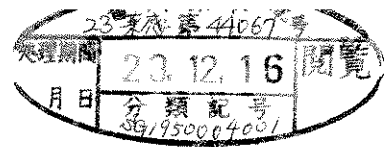 23 東府 第 44067 号
処理期間
23. 12. 16
閲覧
月 日
分類記号
SG1950004001